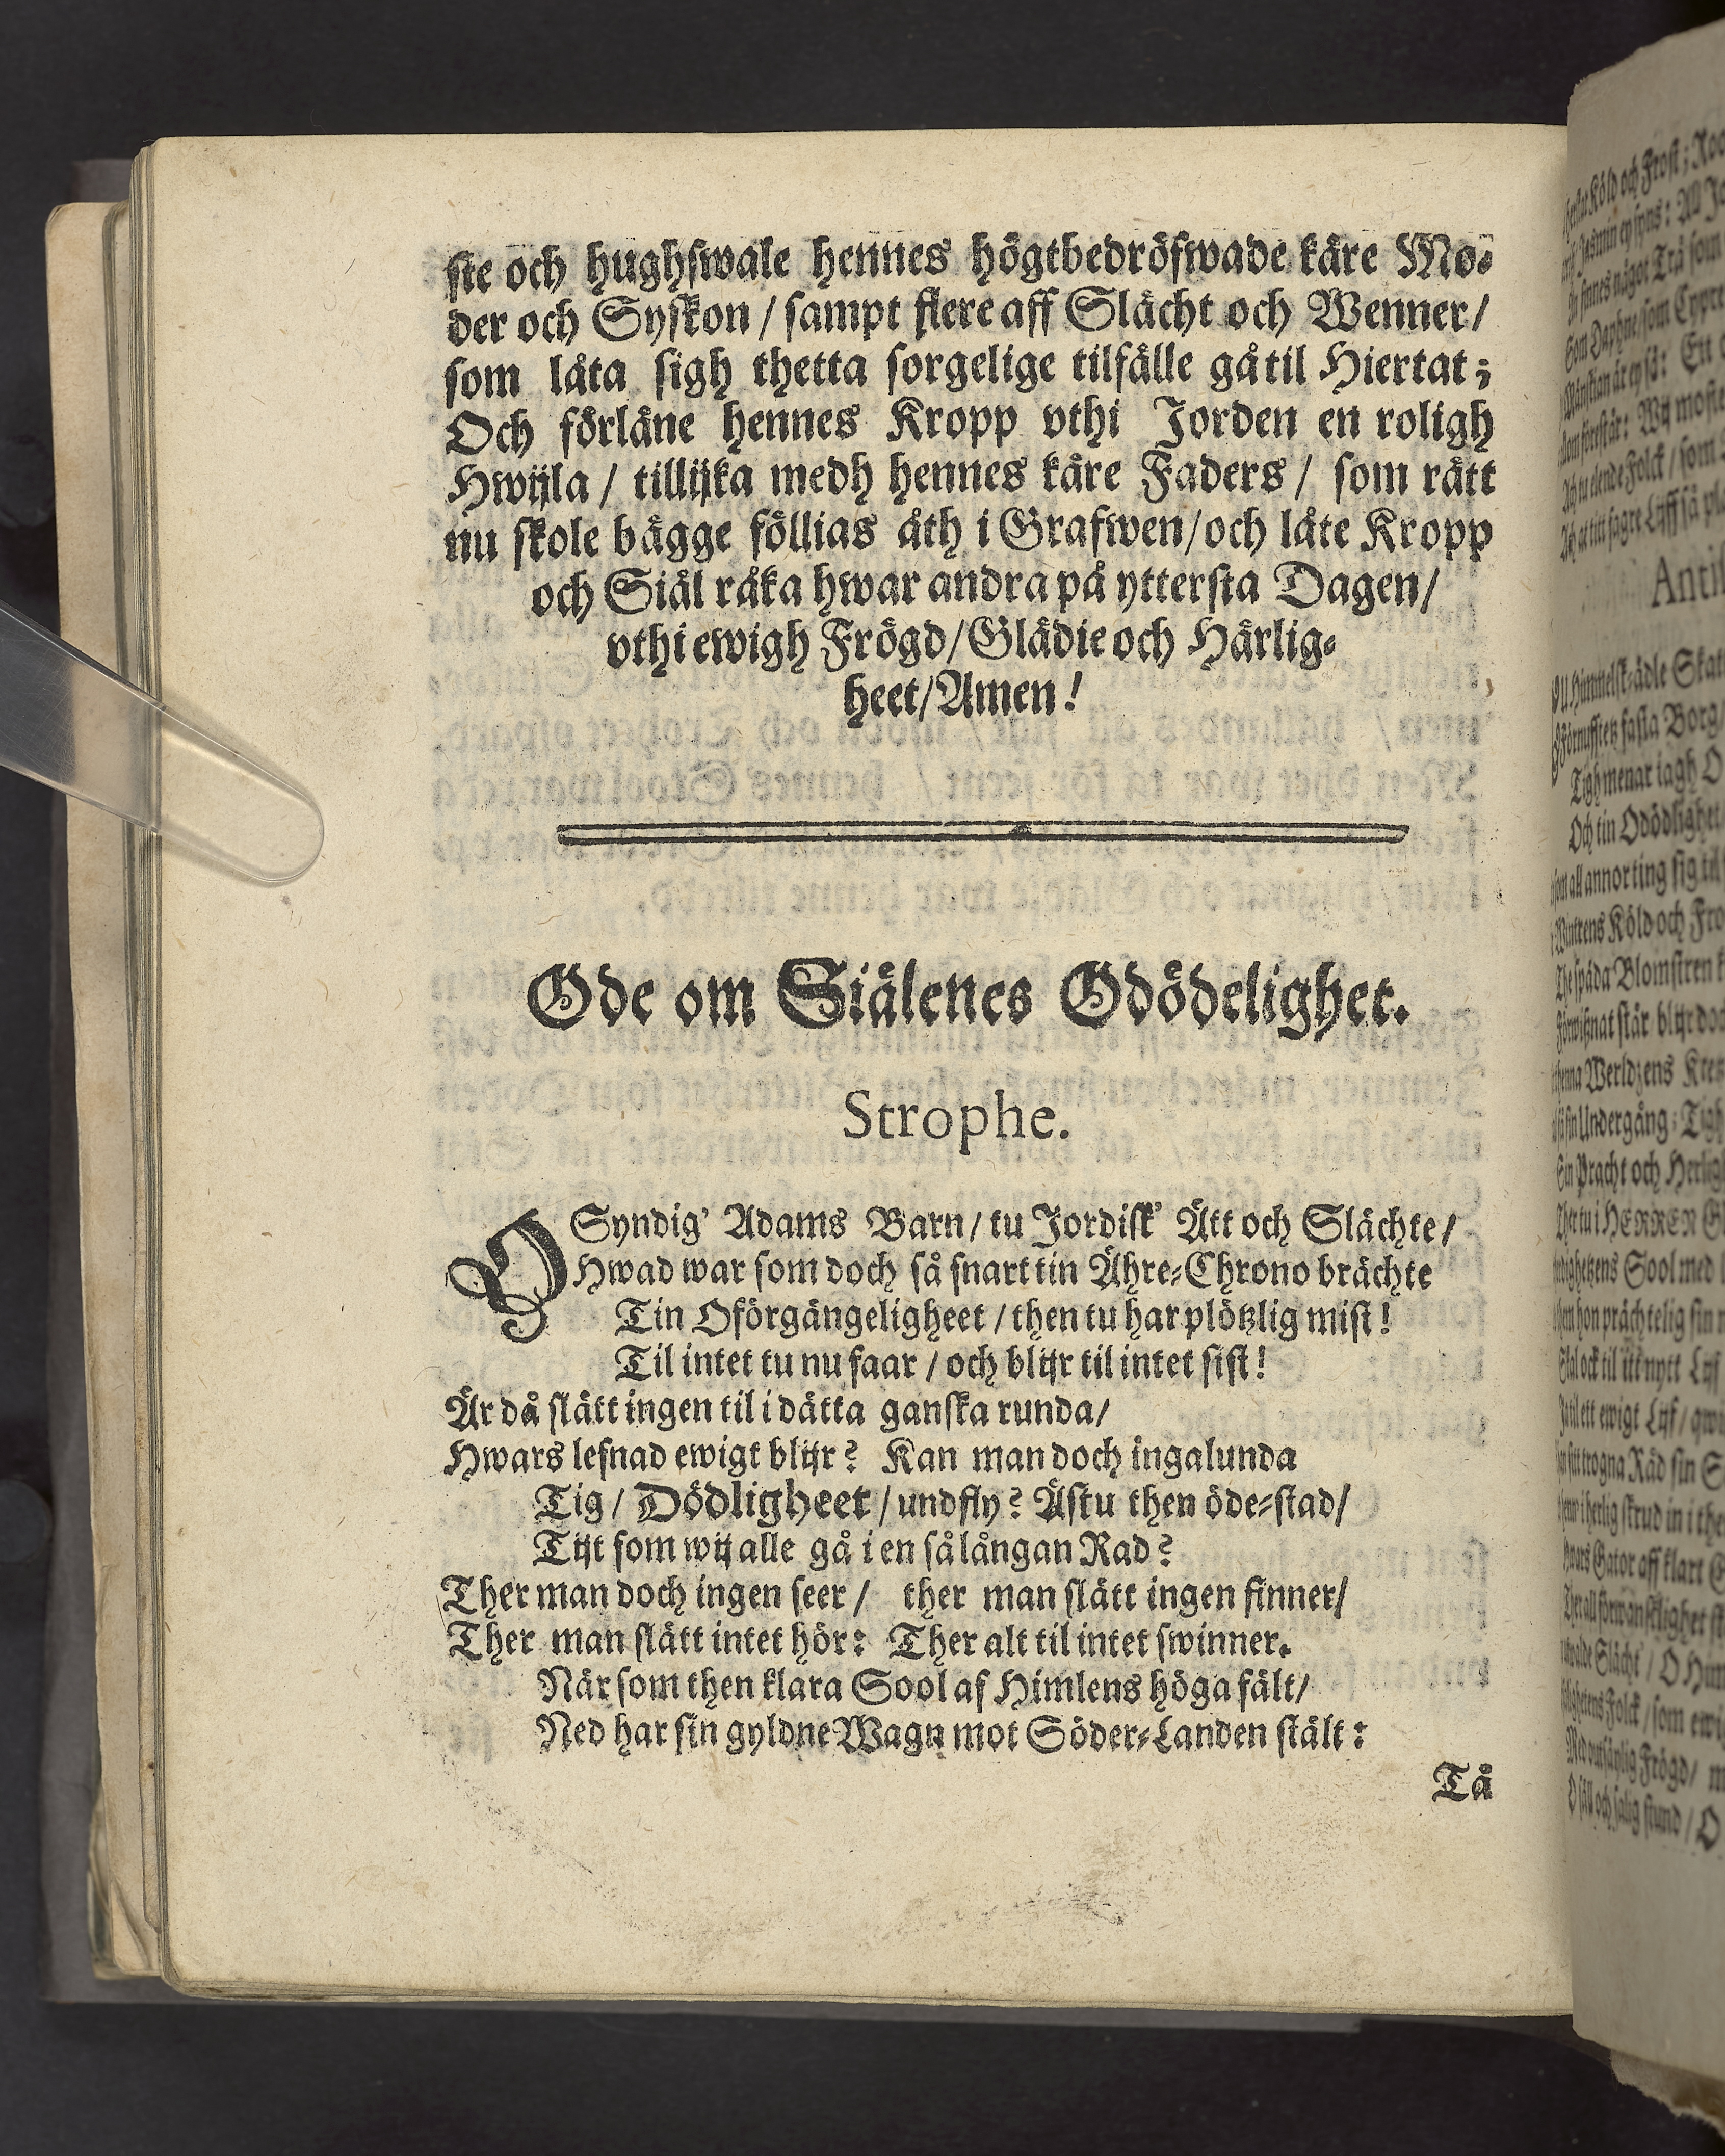 ste och hughswale hennes högtbedröfwade käre Mo-
der och Syskon / sampt flere aff Slächt och Wenner /
som låta sigh thetta sorgelige tilfälle gå til Hiertat;
Och förläne hennes Kropp vthi Jorden en roligh
Hwijla / tillijka medh hennes käre Faders / som rätt
nu skole bägge föllias åth i Grafwen / och låte Kropp
och Siäl råka hwar andra på yttersta Dagen /
vthi ewigh Frögd / Glädie och Härlig-
heet / Amen!
Ode om Siälenes Odödelighet.
Strophe.
O Syndig' Adams Barn / tu Jordisk' Ätt och Slächte /
Hwad war som doch så snart tin Ähre-Chrono brächte
Tin Oförgängeligheet / then tu har plötzlig mist!
Til intet tu nu faar / och blijr til intet sist!
Är då slätt ingen til i dätta ganska runda /
Hwars lefnad ewigt blijr? Kan man doch ingalunda
Tig / Dödligheet / undfly? Ästu then öde-stad /
Tijt som wij alle gå i en så långan Rad?
Ther man doch ingen seer / ther man slätt ingen finner /
Ther man slätt intet hör: Ther alt til intet swinner.
När som then klara Sool af Himlens höga fält /
Ned har sin gyldne Wagn mot Söder-Landen stält:
Tå